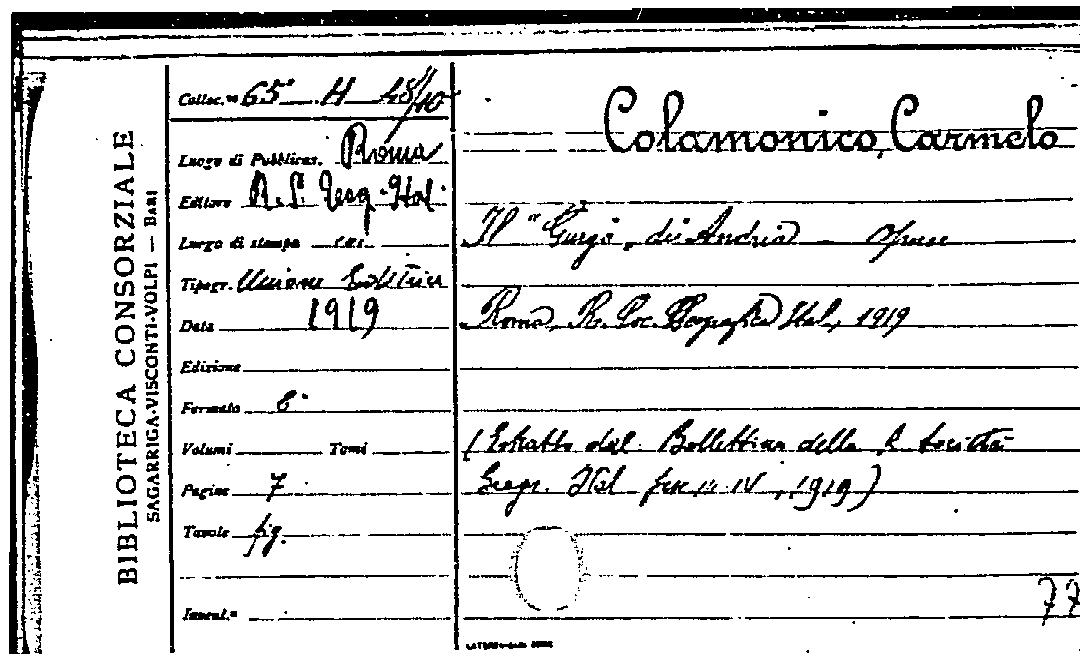 BIBLIOTECA CONSORZIALE
SAGARRIGA-VISCONTI-VOLPI — BARI
Colloc.ne 65° H 48/10
Luogo di Pubblicaz. Roma
Editore R. S. Geog. Ital.
Luogo di stampa
Tipogr. Unione Editrice
Data 1919
Edizione
Formato 8°
Volumi Tomi
Pagine 7
Tavole fig.
Invent.º
Colamonico, Carmelo
Il "Gurgo" di Andria
Roma, R. Soc. Geografica Ital., 1919
(Estratto dal Bollettino della R. Società
Geogr. Ital. fasc. III-IV, 1919)
77